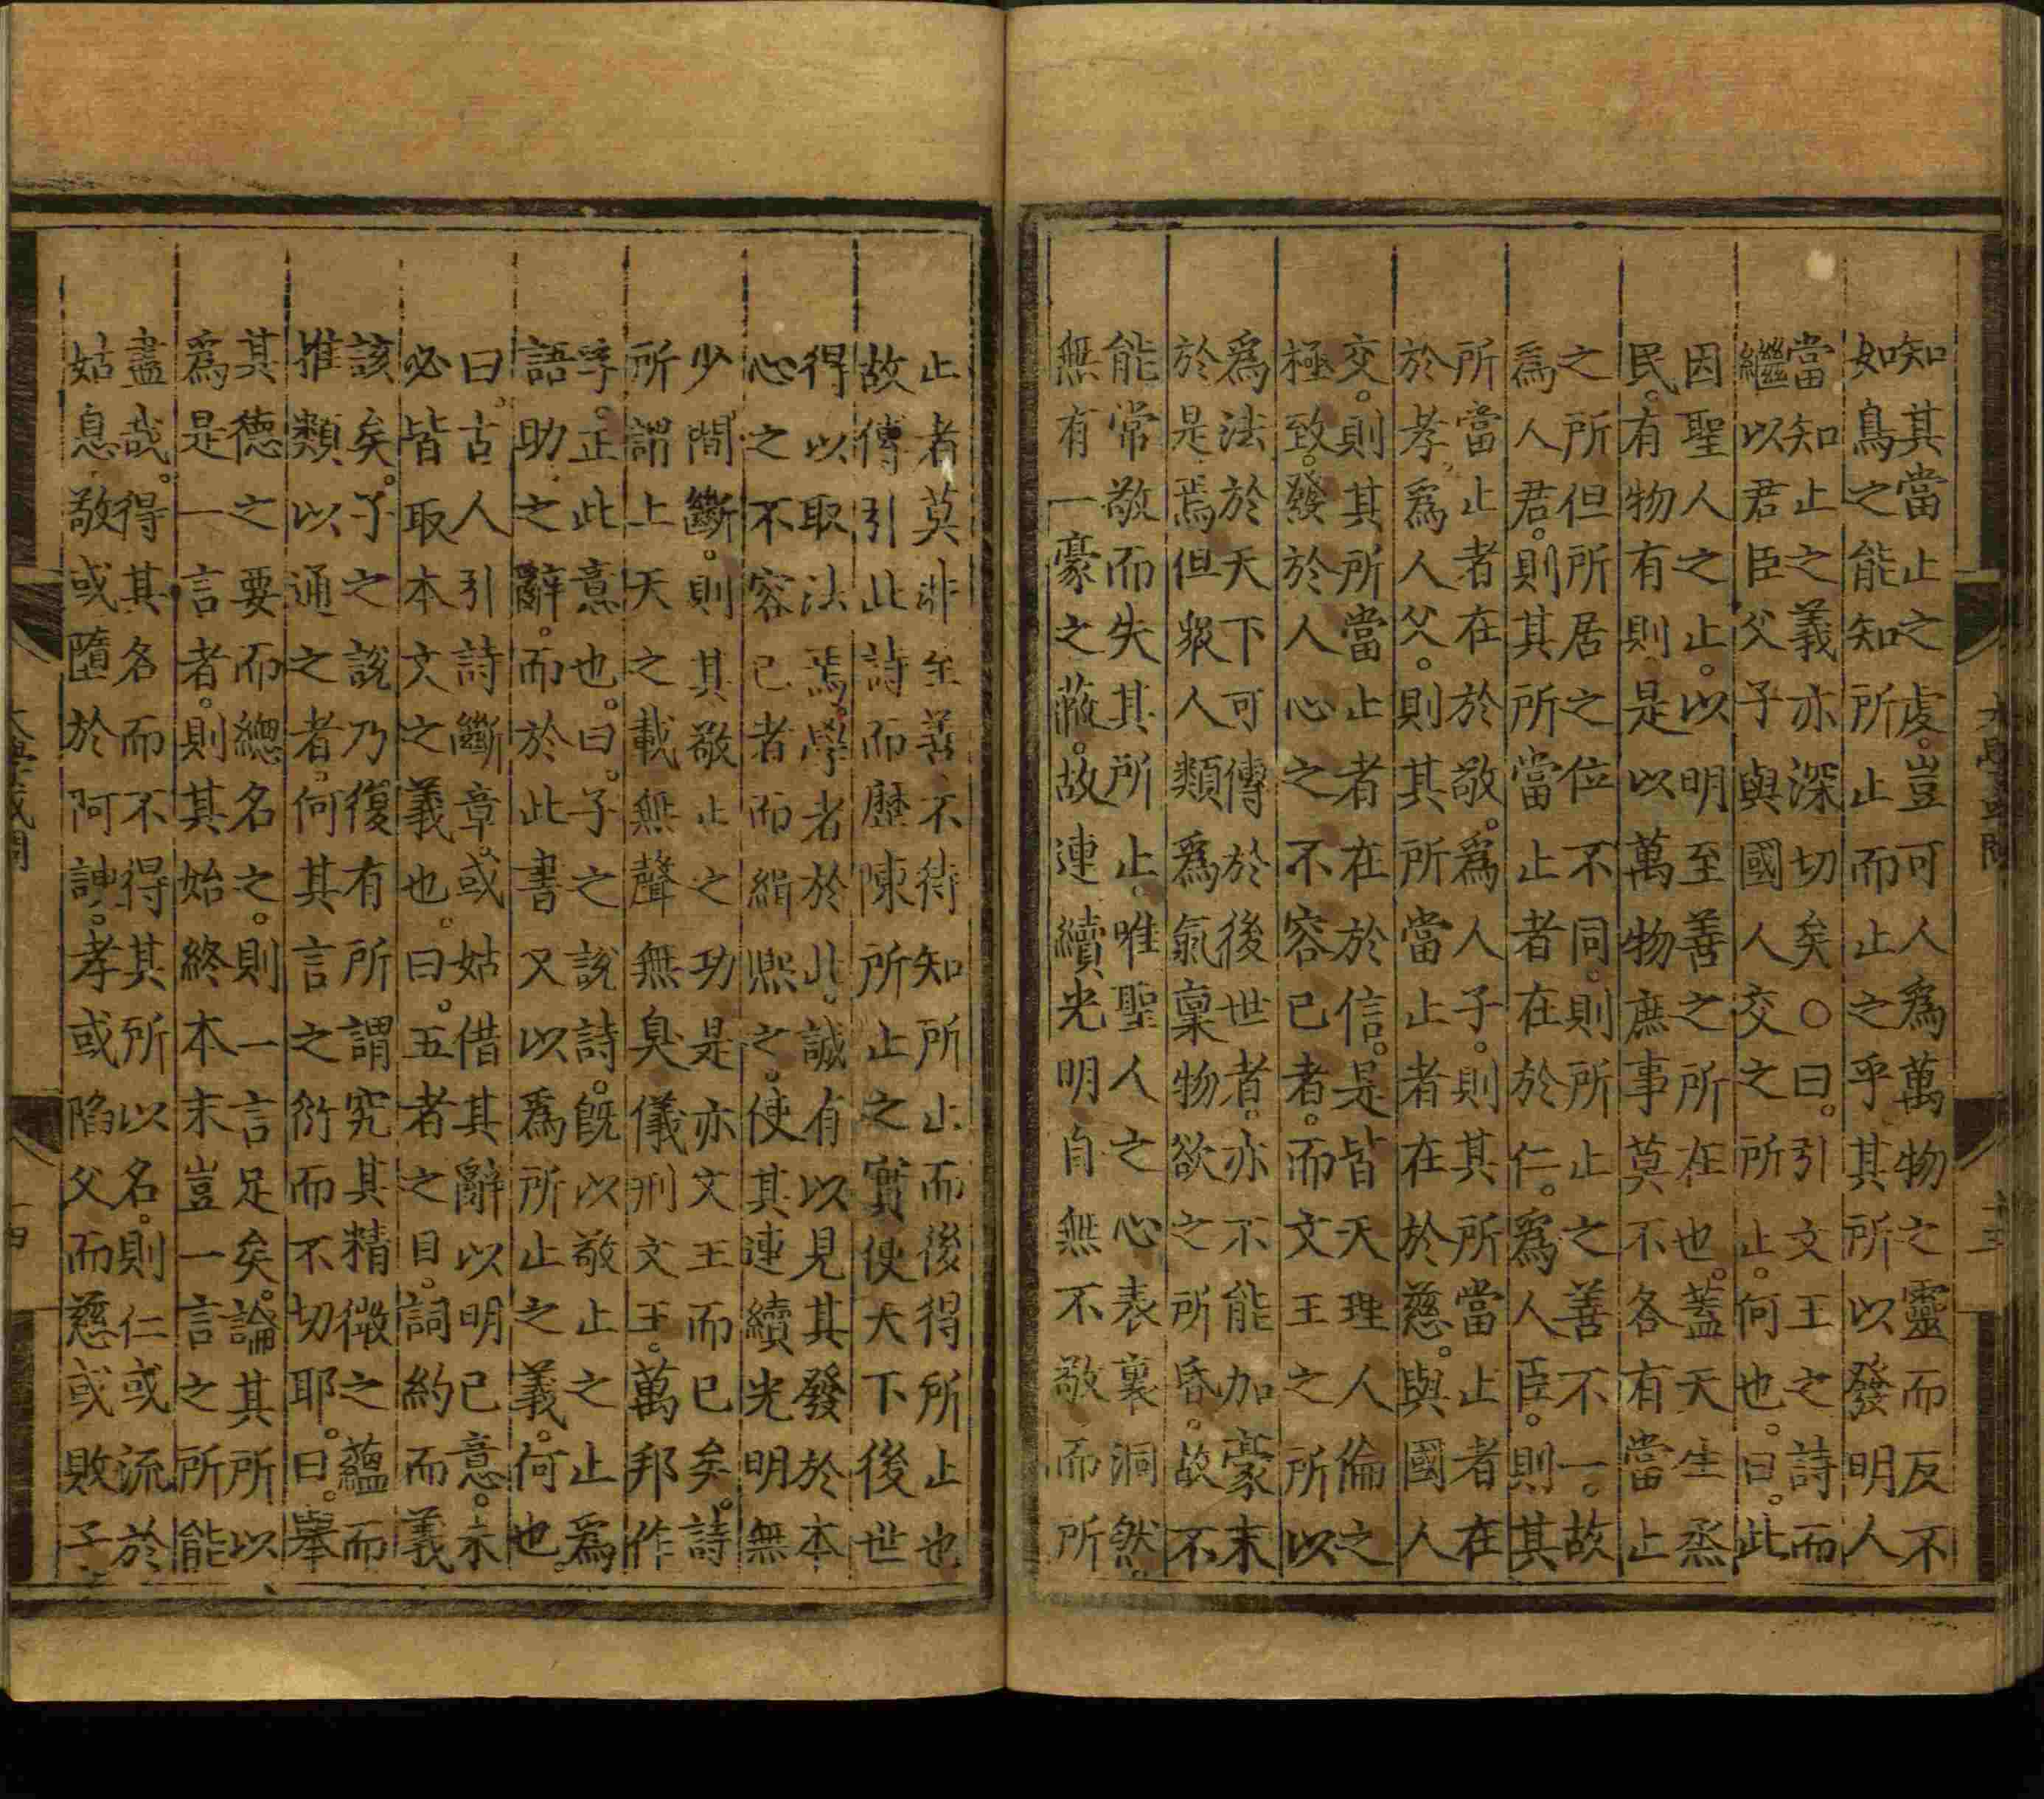 大學或問 十三
知其當止之處。豈可人爲萬物之靈而反不
如鳥之能知所止而止之乎。其所以發明人
當知止之義亦深切矣○曰。引文王之詩而
繼以君臣父子與國人交之所止。何也。曰。此
因聖人之止。以明至善之所在也。蓋天生烝
民。有物有則。是以萬物庶事莫不各有當止
之所但所居之位不同。則所止之善不一。故
爲人君。則其所當止者在於仁。爲人臣。則其
所當止者在於敬。爲人子。則其所當止者在
於孝。爲人父。則其所當止者在於慈。與國人
交。則其所當止者在於信。是皆天理人倫之
極致。發於人心之不容已者。而文王之所以
爲法於天下可傳於後世者。亦不能加豪末
於是焉但衆人類爲氣稟物欲之所昏。故不
能常敬而失其所止。唯聖人之心表裏洞然。
無有一豪之蔽。故連續光明自無不敬而所
止者莫非至善不待知所止而後得所止也。
故傳引此詩而歷陳所止之實使天下後世
得以取法焉。學者於此。誠有以見其發於本
心之不容已者而緝熙之。使其連續光明無
少間斷。則其敬止之功是亦文王而已矣。詩
所謂上天之載無聲無臭儀刑文王。萬邦作
孚。正此意也。曰。子之說詩。既以敬止之止爲
語助之辭。而於此書又以爲所止之義。何也。
曰。古人引詩斷章。或姑借其辭以明已意。未
必皆取本文之義也。曰。五者之目。詞約而義
該矣。子之說乃復有所謂究其精微之蘊而
推類以通之者。何其言之衍而不切耶。曰。舉
其德之要而總名之。則一言足矣。論其所以
爲是一言者。則其始終本末豈一言之所能
盡哉。得其名而不得其所以名。則仁或流於
姑息。敬或墮於阿諛。孝或陷父而慈或敗子
大學或問 十四